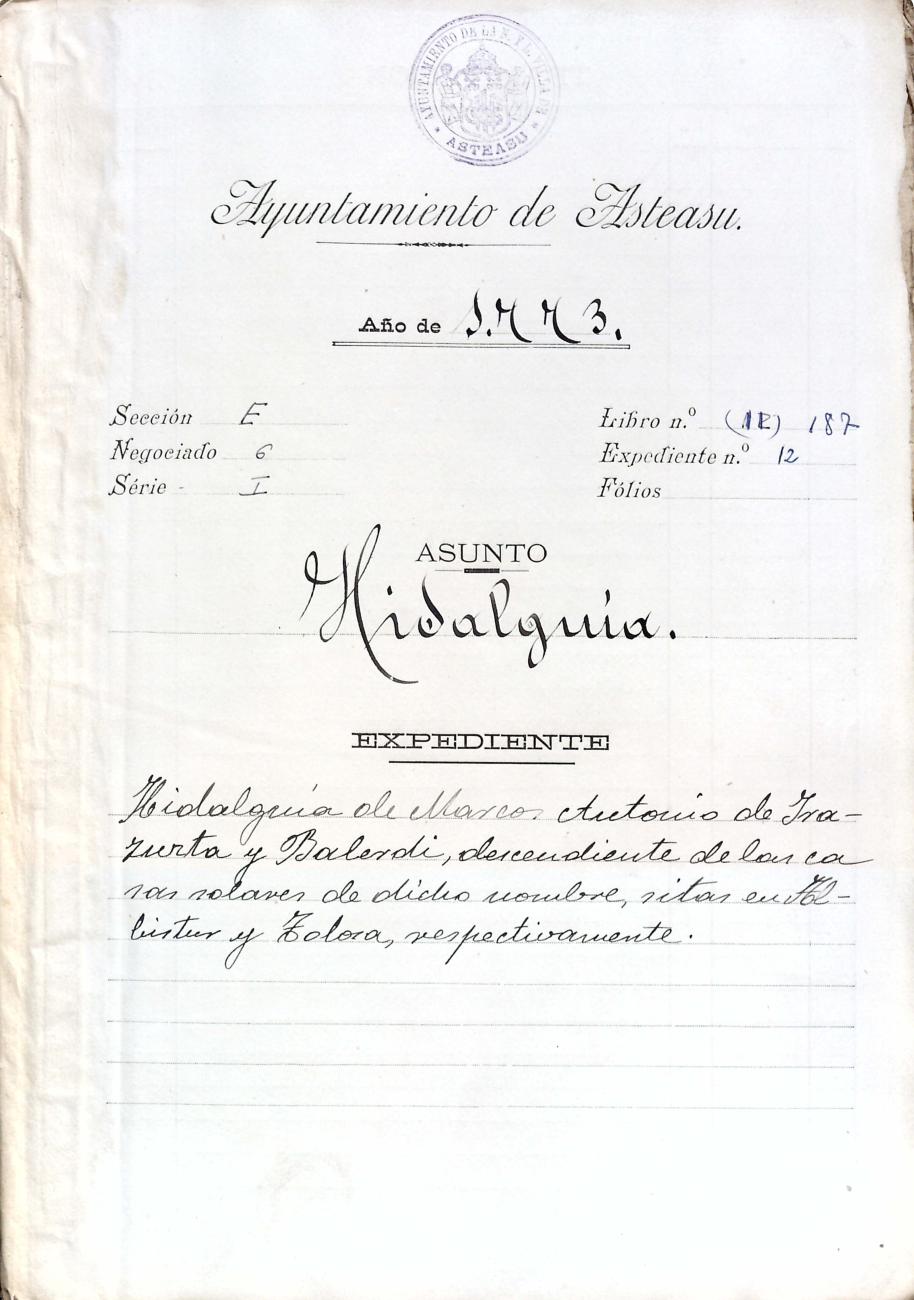 AYUNTAMIENTO DE LA N. Y L. VILLA DE
* ASTEASU *
Ayuntamiento de Asteasu.
Año de 1.773.
Sección E
Negociado 6
Série - I
Libro n.º (12) 187
Expediente n.º 12
Fólios
ASUNTO
Hidalguía.
EXPEDIENTE
Hidalguía de Marcos Antonio de Ira-
zurta y Balerdi, descendiente de las ca
sas solares de dicho nombre, sitas en Al-
bistur y Tolosa, respectivamente.